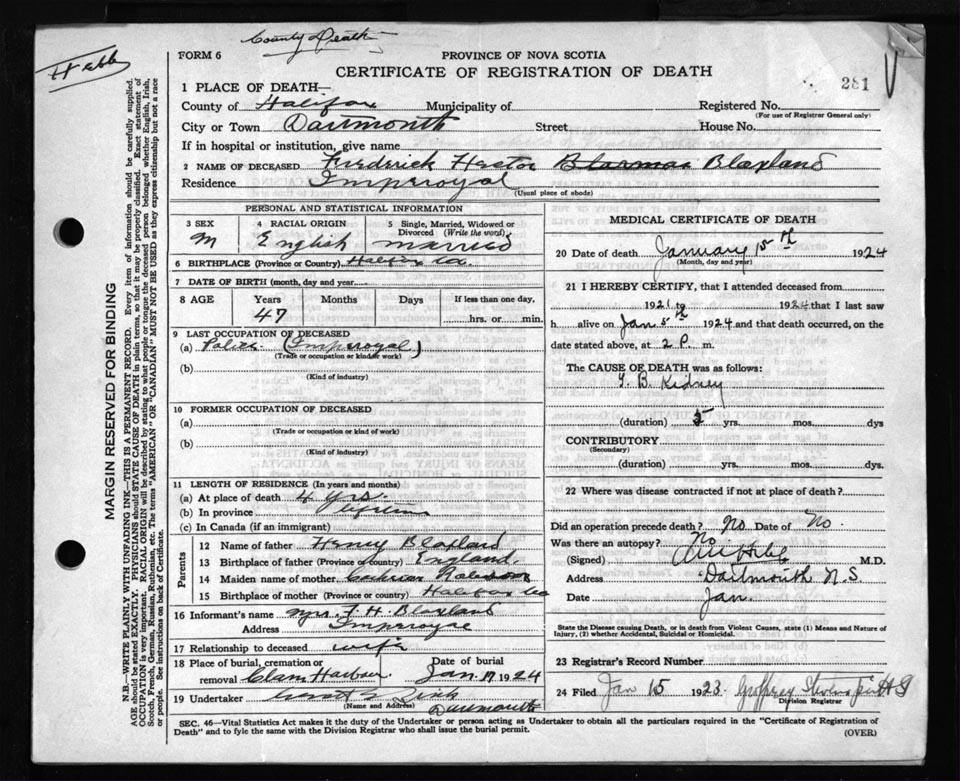 County Death
Webb
FORM 6
PROVINCE OF NOVA SCOTIA
CERTIFICATE OF REGISTRATION OF DEATH
281
1 PLACE OF DEATH—
County of Halifax Municipality of Registered No.
(For use of Registrar General only)
City or Town Dartmouth Street House No.
If in hospital or institution, give name
2 NAME OF DECEASED Frederick Hector Blaxland
Residence Imperoyal
(Usual place of abode)
PERSONAL AND STATISTICAL INFORMATION
3 SEX 4 RACIAL ORIGIN 5 Single, Married, Widowed or Divorced (Write the word)
M English married
6 BIRTHPLACE (Province or Country) Halifax Co.
7 DATE OF BIRTH (month, day and year)
8 AGE Years Months Days If less than one day,
47 hrs. or min.
9 LAST OCCUPATION OF DECEASED
(a) Police (Imperoyal)
(Trade or occupation or kind of work)
(b)
(Kind of industry)
10 FORMER OCCUPATION OF DECEASED
(a)
(Trade or occupation or kind of work)
(b)
(Kind of industry)
11 LENGTH OF RESIDENCE (In years and months)
(a) At place of death 4 yrs.
(b) In province lifetime
(c) In Canada (if an immigrant)
Parents
12 Name of father Henry Blaxland
13 Birthplace of father (Province or Country) England
14 Maiden name of mother
15 Birthplace of mother (Province or Country) Halifax Co
16 Informant's name Mrs. F. H. Blaxland
Address Imperoyal
17 Relationship to deceased wife
18 Place of burial, cremation or removal Clam Harbour Date of burial Jan 1924
19 Undertaker
(Name and Address) Dartmouth
MEDICAL CERTIFICATE OF DEATH
20 Date of death January 15th 1924
(Month, day and year)
21 I HEREBY CERTIFY, that I attended deceased from
1921 to 1924 that I last saw
h alive on Jan 5th 1924 and that death occurred, on the
date stated above, at 2 P. m.
The CAUSE OF DEATH was as follows:
T. B. Kidney
(duration) yrs. mos. dys
CONTRIBUTORY
(Secondary)
(duration) yrs. mos. dys.
22 Where was disease contracted if not at place of death?
Did an operation precede death? No Date of No
Was there an autopsy? No
(Signed) M.D.
Address Dartmouth N.S
Date Jan.
State the Disease causing Death, or in death from Violent Causes, state (1) Means and Nature of
Injury, (2) whether Accidental, Suicidal or Homicidal.
23 Registrar's Record Number
24 Filed Jan 15 1923
Division Registrar
SEC. 46—Vital Statistics Act makes it the duty of the Undertaker or person acting as Undertaker to obtain all the particulars required in the "Certificate of Registration of
Death" and to fyle the same with the Division Registrar who shall issue the burial permit.
(OVER)
MARGIN RESERVED FOR BINDING
N.B.—WRITE PLAINLY WITH UNFADING INK—THIS IS A PERMANENT RECORD. Every item of information should be carefully supplied.
AGE should be stated EXACTLY. PHYSICIANS should STATE CAUSE OF DEATH in plain terms, so that it may be properly classified. Exact statement of
OCCUPATION is very important. RACIAL ORIGIN will be described by stating to what people or tongue the deceased person belonged whether English, Irish,
Scotch, French, German, Russian, Ruthenian, etc. The terms "AMERICAN" OR "CANADIAN" MUST NOT BE USED as they express citizenship but not a race
or people. See instructions on back of Certificate.